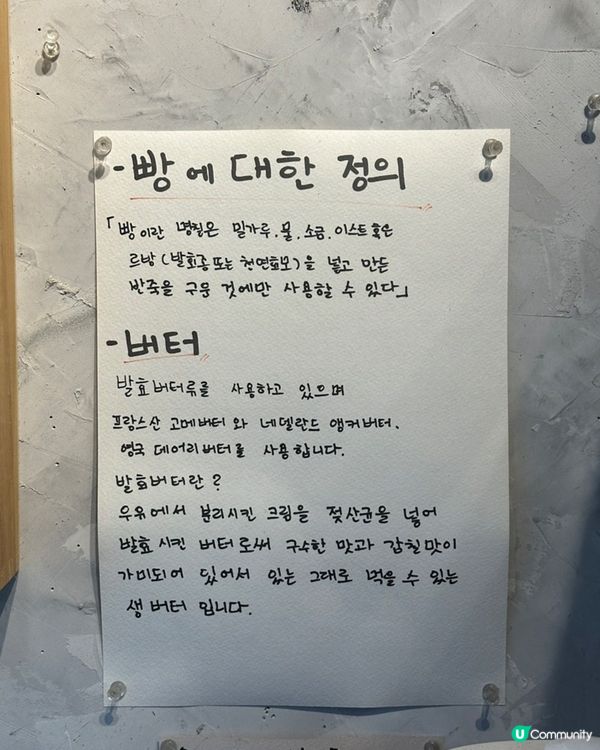 - 빵에 대한 정의
「빵이란 명칭은 밀가루. 물. 소금. 이스트 혹은
르방(발효종 또는 천연효모)을 넣고 만든
반죽을 구운 것에만 사용할 수 있다」
- 버터
발효버터류를 사용하고 있으며
프랑스산 고메버터 와 네덜란드 앵커버터.
영국 데어리버터를 사용합니다.
발효버터란?
우유에서 분리시킨 크림을 젖산균을 넣어
발효시킨 버터로써 구수한 맛과 감칠맛이
가미되어 있어서 있는 그대로 먹을 수 있는
생 버터 입니다.
U Community